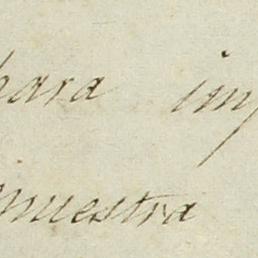 para imp
muestra